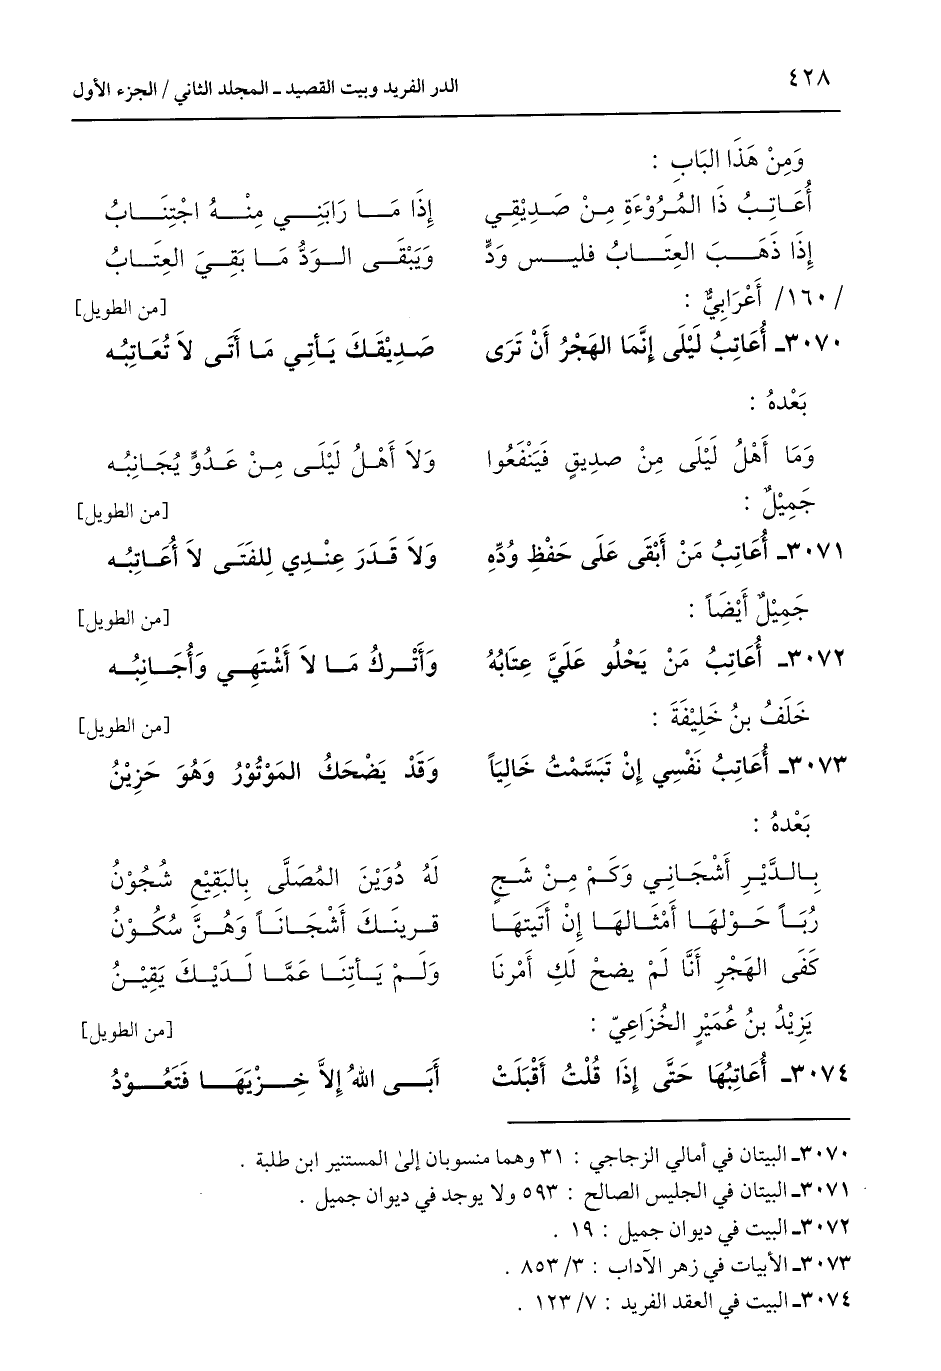 ٤٢٨
الدر الفريد وبيت القصيد ـ المجلد الثاني / الجزء الأول
وَمِنْ هَذَا البَابِ :
أُعَاتِبُ ذَا المُرُوْءَةِ مِنْ صَدِيْقِي إِذَا مَا رَابَنِي مِنْهُ اجْتِنَابُ
إِذَا ذَهَبَ العِتَابُ فليس وَدٌّ وَيَبْقَى الوَدُّ مَا بَقِيَ العِتَابُ
/١٦٠/ أَعْرَابِيٌّ : [من الطويل]
٣٠٧٠ـ أُعَاتِبُ لَيْلَى إِنَّمَا الهَجْرُ أَنْ تَرَى صَدِيْقَكَ يَأتِي مَا أَتَى لاَ تُعَاتِبُه
بَعْدهُ :
وَمَا أَهْلُ لَيْلَى مِنْ صديقٍ فَيَنْفَعُوا وَلاَ أَهْلُ لَيْلَى مِنْ عَدُوٍّ يُجَانِبُه
جَمِيْلٌ : [من الطويل]
٣٠٧١ـ أُعَاتِبُ مَنْ أَبْقَى عَلَى حَفْظِ وُدِّه وَلاَ قَدَرَ عِنْدِي لِلفَتَى لاَ أُعَاتِبُه
جَمِيْلٌ أَيْضَاً : [من الطويل]
٣٠٧٢ـ أُعَاتِبُ مَنْ يَحْلُو عَلَيَّ عِتَابُهُ وَأَتْركُ مَا لاَ أَشْتَهِي وَأُجَانِبُه
خَلَفُ بنُ خَلِيْفَةَ : [من الطويل]
٣٠٧٣ـ أُعَاتِبُ نَفْسِي إِنْ تَبَسَّمْتُ خَالِيَاً وَقَدْ يَضْحَكُ المَوْتُوْرُ وَهُوَ حَزِيْنُ
بَعْدهُ :
بِالدَّيْرِ أَشْجَانِي وَكَمْ مِنْ شَجٍ لَهُ دُوَيْنَ المُصَلَّى بِالبَقِيْعِ شُجُوْنُ
رُبَاً حَوْلهَا أَمْثَالهَا إِنْ أَتَيتهَا قرينكَ أَشْجَانَاً وَهُنَّ سُكُوْنُ
كَفَى الهَجْرِ أَنَّا لَمْ يضحْ لَكِ أَمْرنَا وَلَمْ يَأتنَا عَمَّا لَدَيْكَ يَقِيْنُ
يَزِيْدُ بنُ عُمَيْرٍ الخُزَاعِيّ : [من الطويل]
٣٠٧٤ـ أُعَاتِبُهَا حَتَّى إِذَا قُلْتُ أَقْبَلَتْ أَبَى اللهُ إِلاَّ خِزْيَهَا فَتَعُوْدُ
٣٠٧٠ـ البيتان في أمالي الزجاجي : ٣١ وهما منسوبان إلىٰ المستنير ابن طلبة .
٣٠٧١ـ البيتان في الجليس الصالح : ٥٩٣ ولا يوجد في ديوان جميل .
٣٠٧٢ـ البيت في ديوان جميل : ١٩ .
٣٠٧٣ـ الأبيات في زهر الآداب : ٣/ ٨٥٣ .
٣٠٧٤ـ البيت في العقد الفريد : ٧/ ١٢٣ .